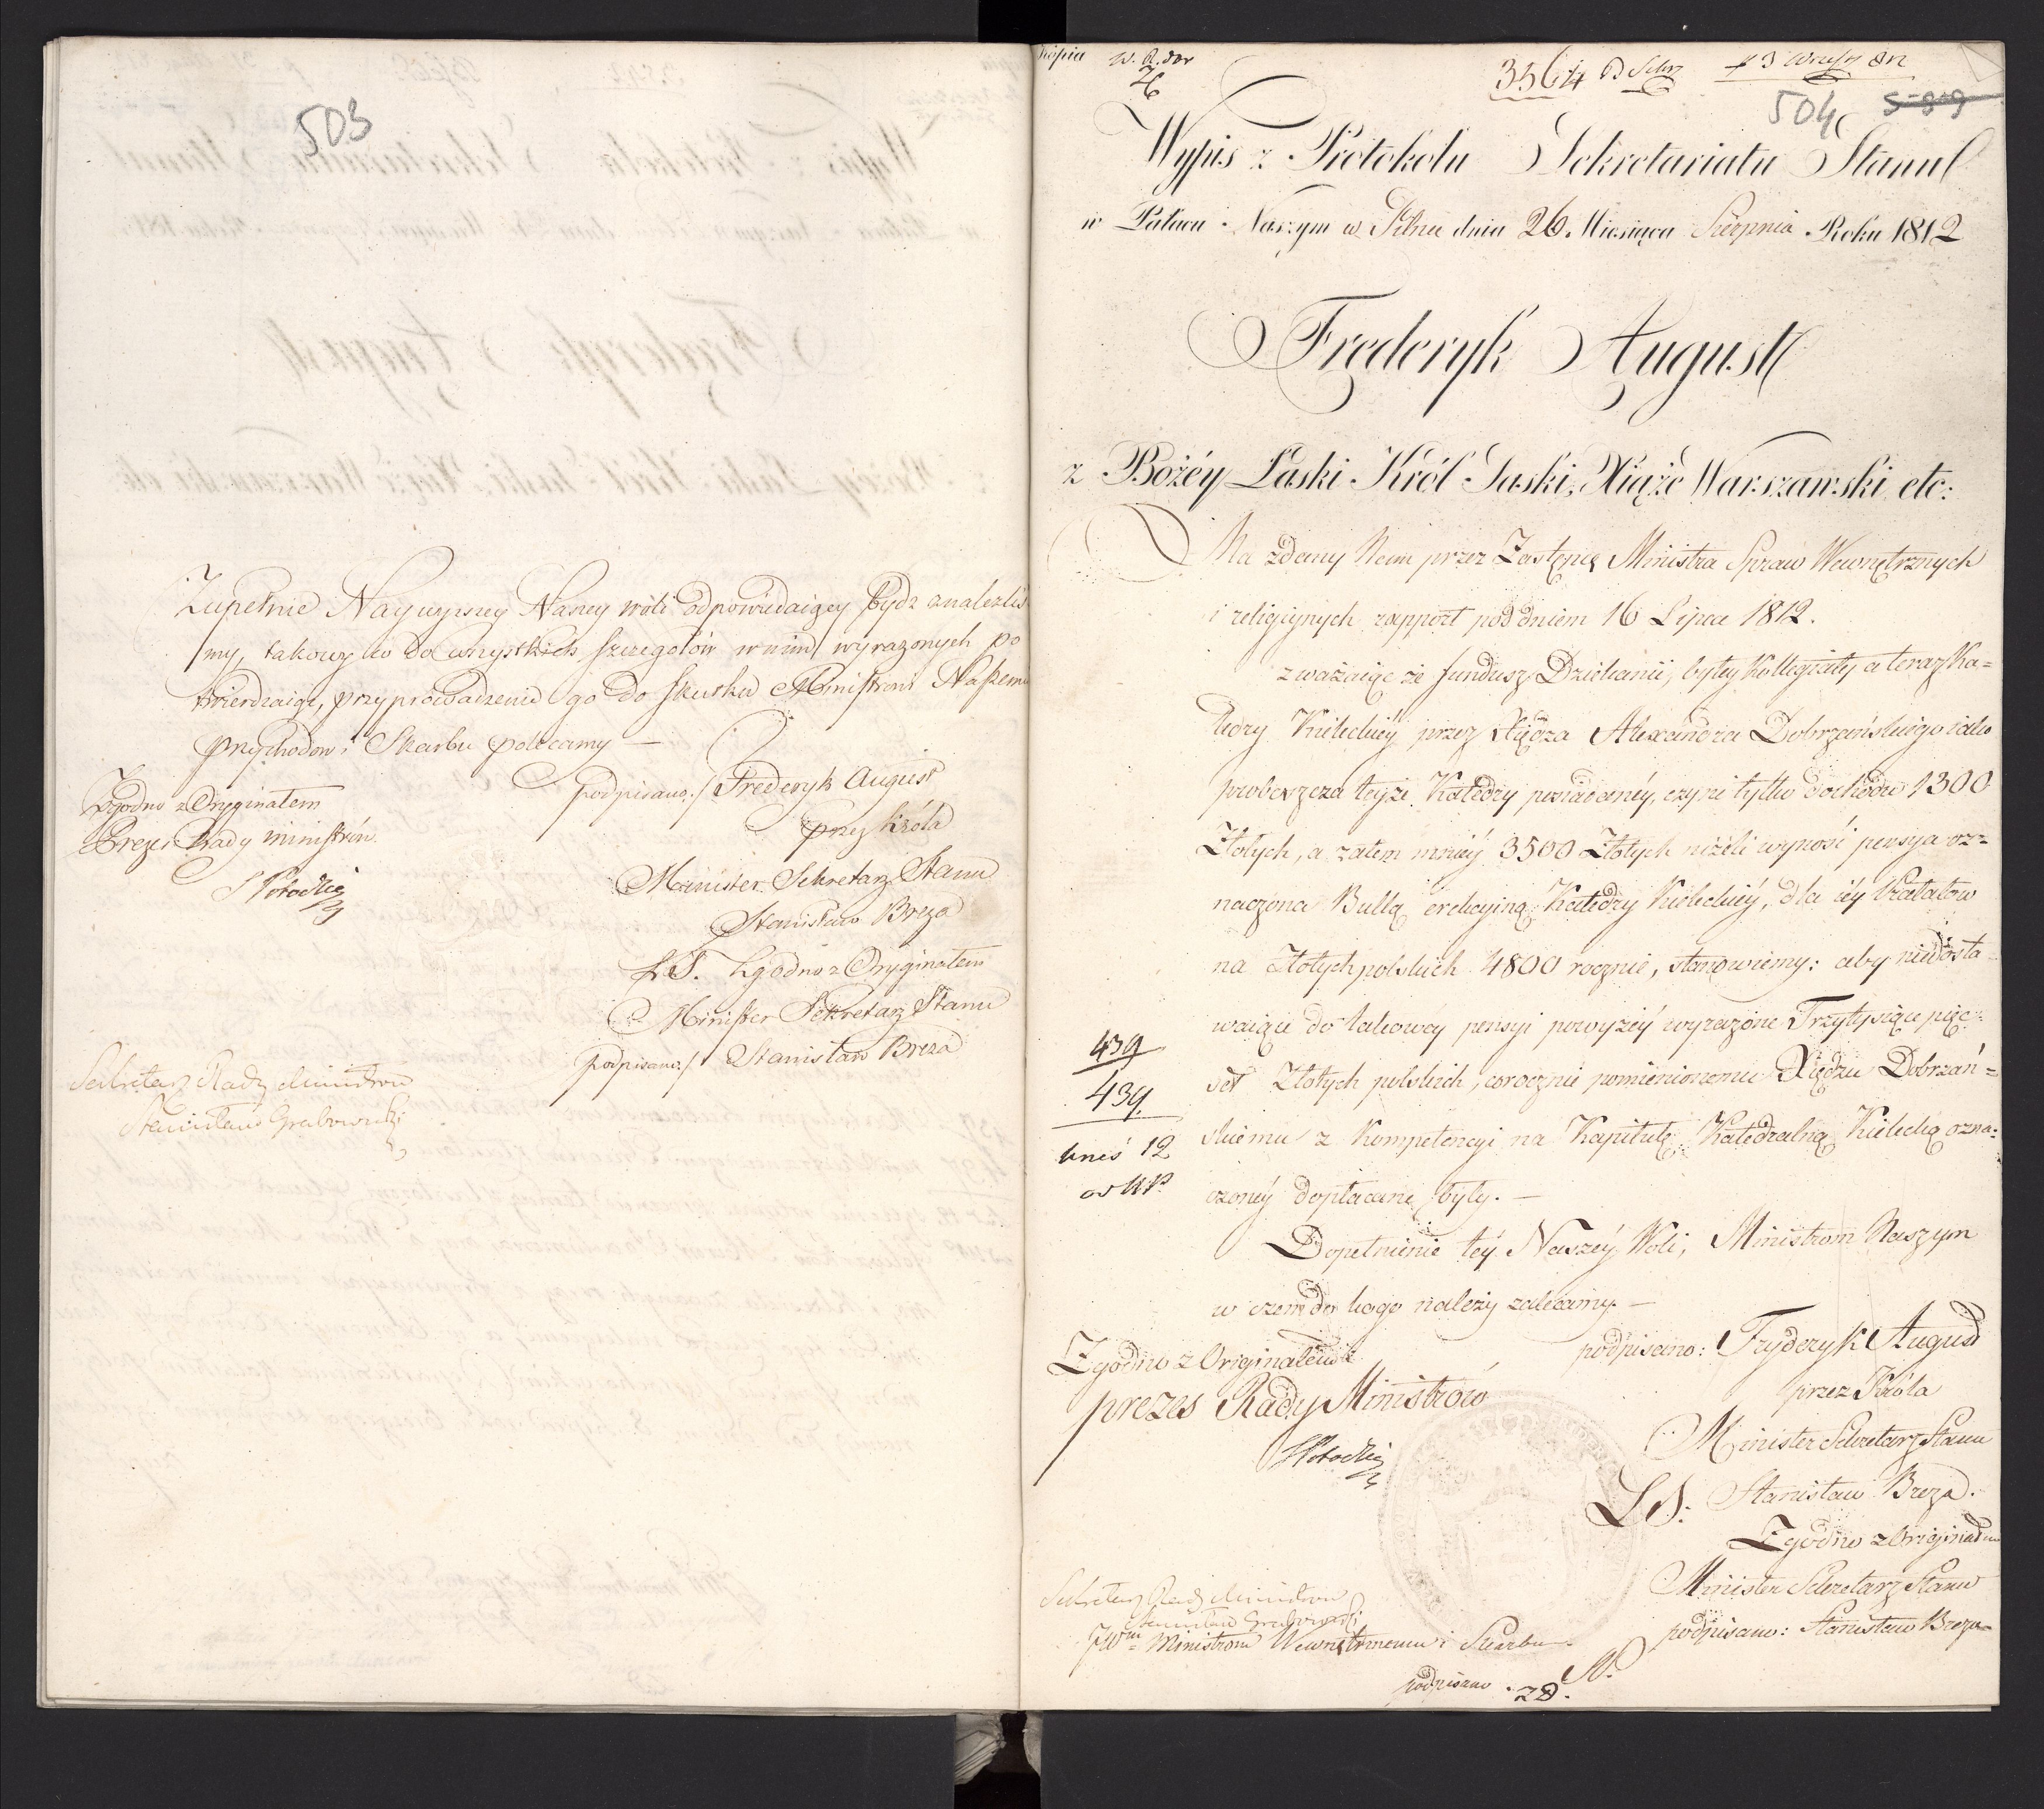 503
Zupełnie Naywyższey Naszey woli odpowiedaiący bydz znalezliś
my, takowy co do wszystkich szczegułów w nim wyrażonych po
twierdzaiąc, przyprowadzenie go do skutku Ministrowi Naszemu
Przychodow i Skarbu polecamy —
podpisano:/ Frederyk August
przez Króla
Minister Sekretarz Stanu
Stanisław Breza
L.S. Zgodno z Oryginałem
Minister Sekretarz Stanu
podpisano:/ Stanisław Breza
Zgodno z Oryginałem
Prezes Rady Ministrów
S Potocki
Sekretarz Rady Ministrow
Stanisław Grabowski
Kopia
3564
504
Wypis z Protokołu Sekretariatu Stanu
w Pałacu Naszym w Pilnu dnia 26 Miesiąca Sierpnia Roku 1812
Frederyk August
z Bożéy Łaski Król Saski, Xiąże Warszawski etc:
Na zdany Nam przez Zastępcę Ministra Spraw Wewnętrznych
i religiynych rapport pod dniem 16 Lipca 1812.
zważaiąc że fundusz Dziekanii, byłey Kollegiaty a teraz Ka=
tedry Kieleckiéy przez Xiędza Alexandra Dobrzańskiego iako
proboszcza teyże Katedry posiadanéy, czyni tylko dochodu 1300
Złotych, a zatem mniéy 3500 Złotych niżeli wynosi pensya oz=
naczona Bullą erekcyiną Katedry Kieleckiéy, dla iéy Prałatów
na Złotych polskich 4800 rocznie, stanowiemy: aby niedosta=
waiące do takowey pensyi powyżéy wyrażone Trzy tysiące pięc=
set Złotych polskich, corocznie pomienionemu Xiędzu Dobrzań=
skiemu z Kompetencyi na Kapitułę Katedralną Kielecką ozna=
czonéy dopłacane były. —
439
439.
Dopełnienie téy Naszéy Woli, Ministrom Naszym
w czem do kogo należy zalecamy. —
podpisano: Fryderyk August
przez Króla
Minister Sekretarz Stanu
LS: Stanisław Breza.
Zgodno z Originałem
Minister Sekretarz Stanu
podpisano: Stanisław Breza
Zgodno z Originałem
prezes Rady Ministrów
S Potocki
Sekretarz Rady Ministrow
Stanisław Grabowski
JWm Ministrom Wewnętrznemu i Skarbu
podpisano